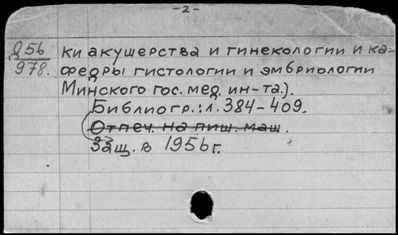 -2-
Д56 ки акушерства и гинекологии и ка-
978. федры гистологии и эмбриологии
Минского гос. мед. ин-та.).
Библиогр.: л. 384-409.
Отпеч. на пиш. маш.
Защ. в 1956 г.